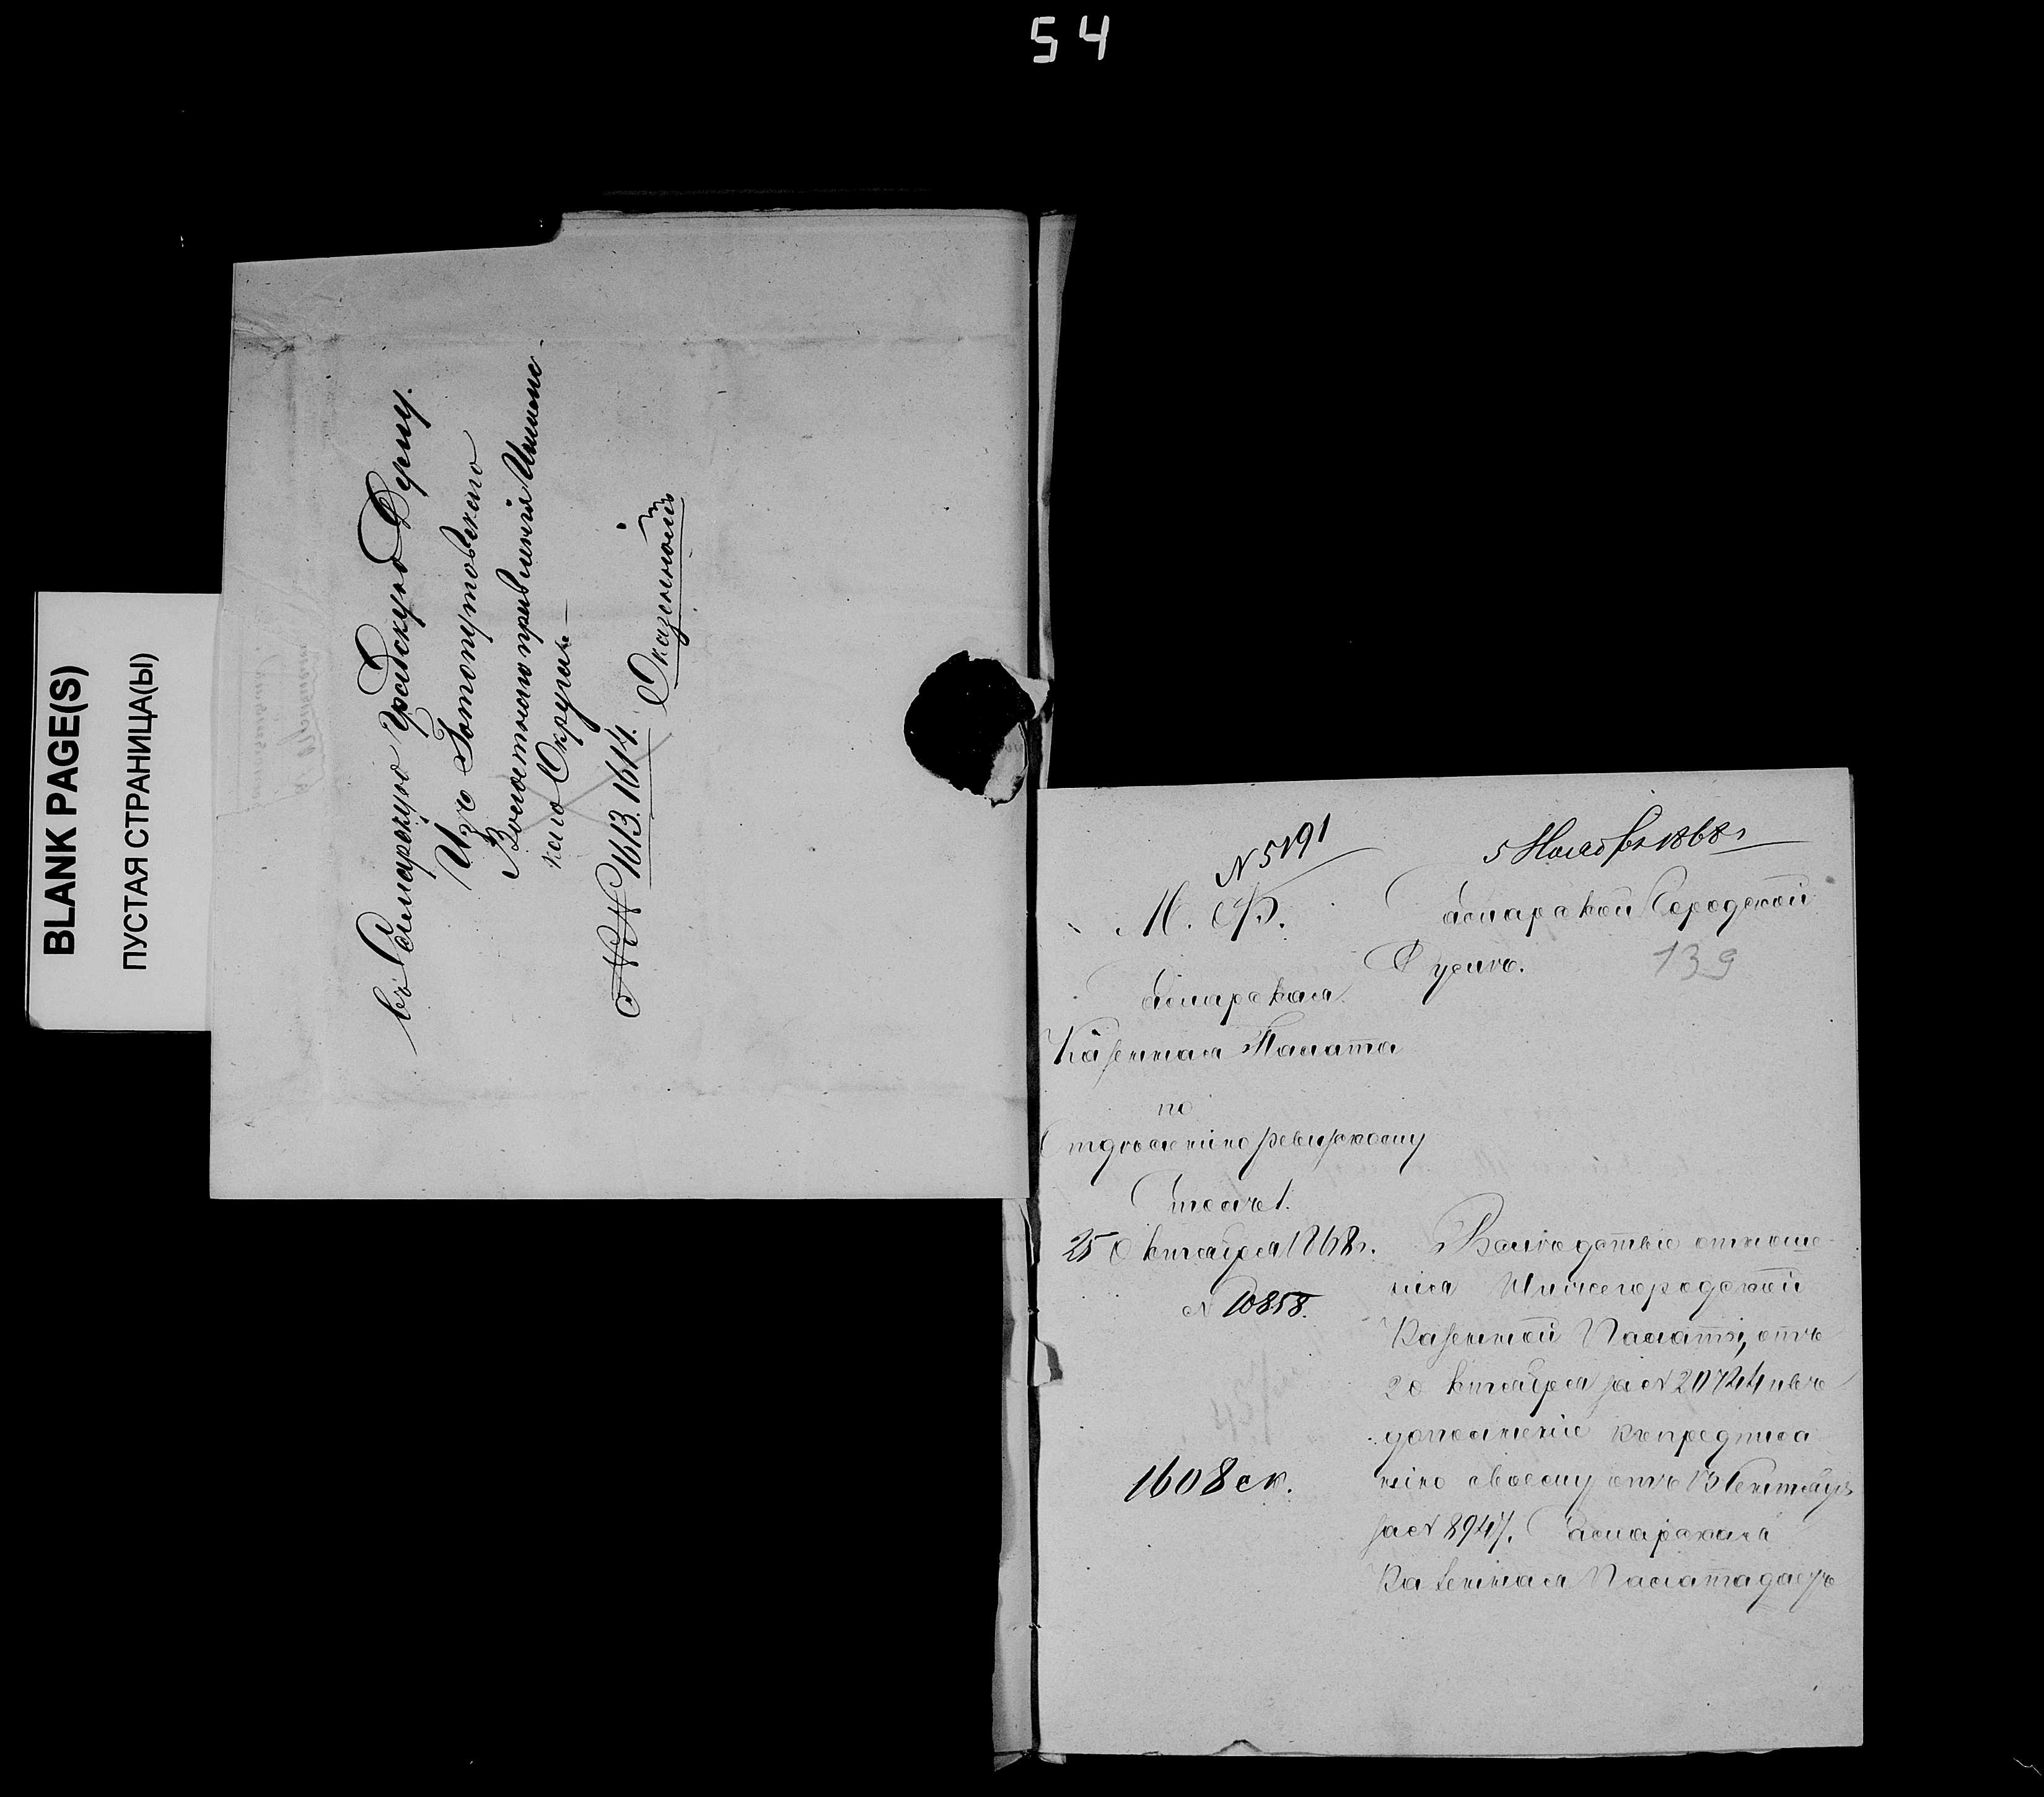 54
BLANK PAGE(S)
ПУСТАЯ СТРАНИЦА(Ы)
въ Самарскую Градскую Думу.
Изъ
Волостнаго правленія
каго Округа
№№ 1613. 1614. Съ казеннымъ
№ 5191
5 Ноября 1868 г
М. Ф.
Самарской Городской
Думѣ.
139
Самарская
Казенная Палата
по
Отдѣленію Ревизскому
Столъ 1.
25 Октября 1868 г.
№ 10858.
1608 ск.
Вслѣдствіе отноше-
нія Нижегородской
Казенной Палаты, отъ
2 Октября за № 20744 и въ
дополненіе къ предписа
нію своему отъ 13 Сентября
за № 8947. Самарская
Казенная Палата даетъ